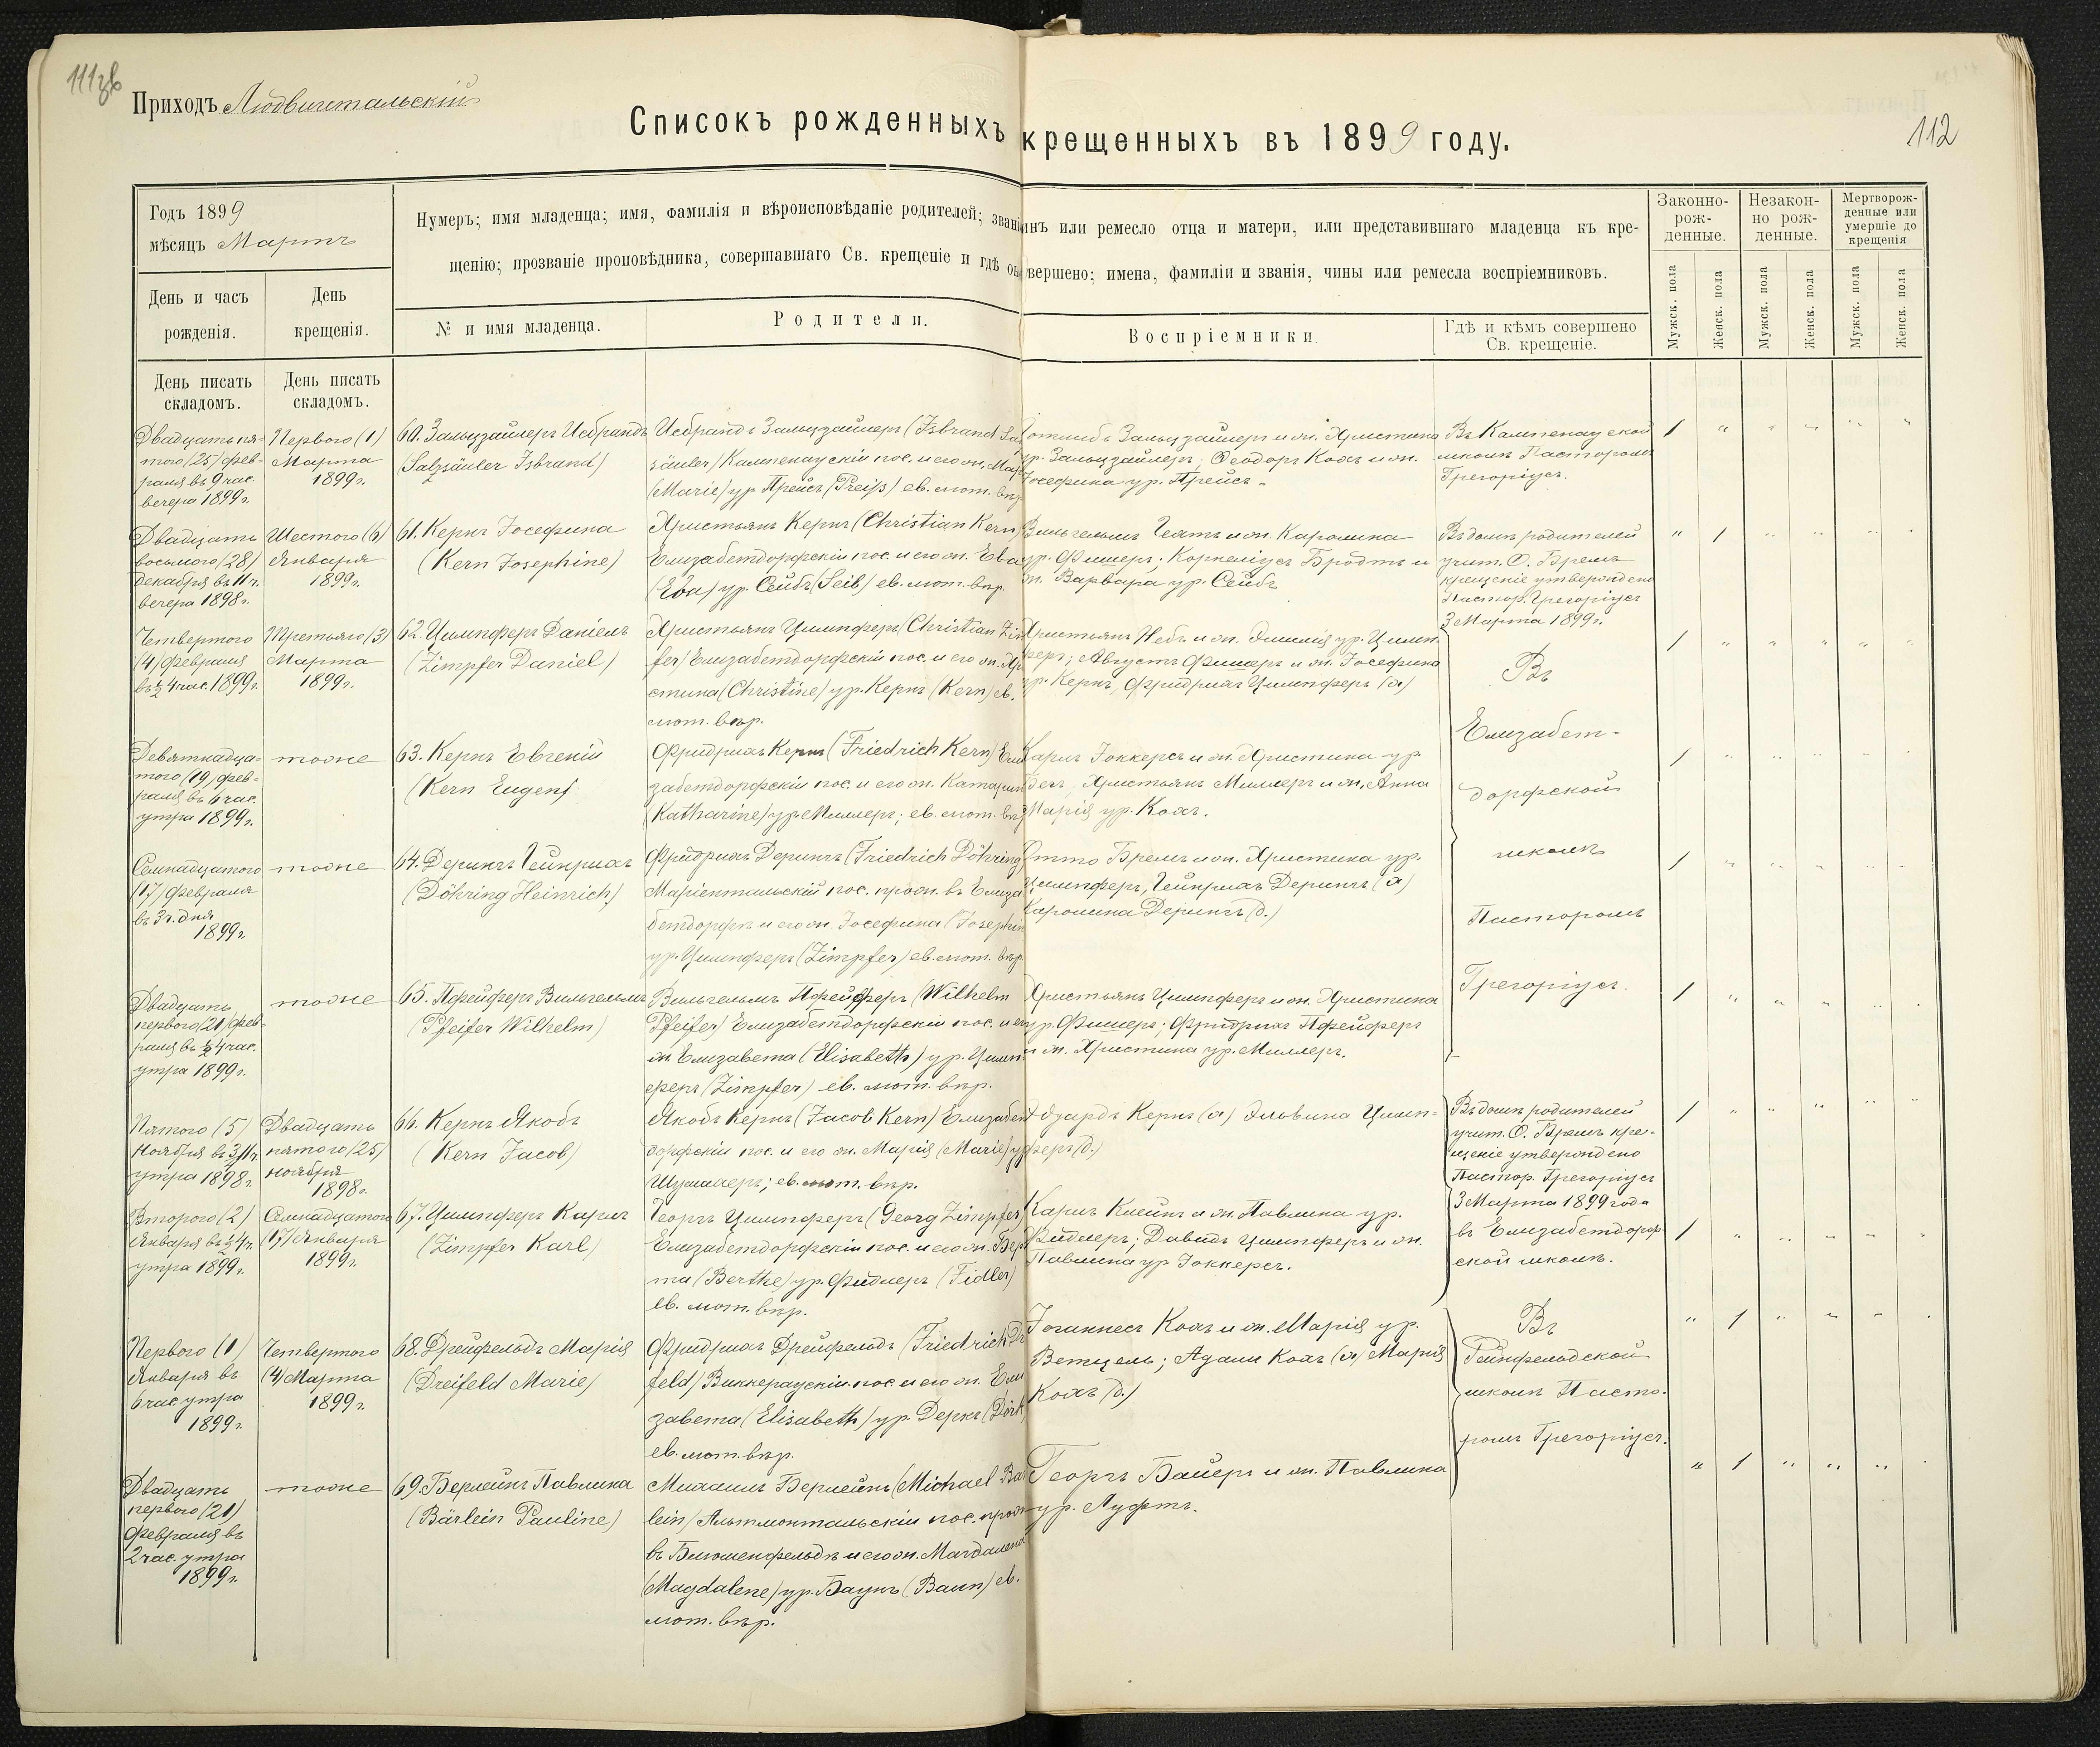 111об
Приходъ Людвигстальскій
112
Списокъ рожденныхъ крещенныхъ въ 1899 году.
Годъ 1899
мѣсяцъ Мартъ
Нумеръ; имя младенца; имя, фамилія и вѣроисповѣданіе родителей; званіе
чинъ или ремесло отца и матери, или представившаго младенца къ кре-
щенію; прозваніе проповѣдника, совершавшаго Св. крещеніе и гдѣ
совершено; имена, фамиліи и званія, чины или ремесла воспріемниковъ.
Законно-
рож-
денные.
Незакон-
но рож-
денные.
Мертворож-
денные или
умершіе до
крещенія
День и часъ
рожденія.
День
крещенія.
№ и имя младенца.
Родители.
Воспріемники.
Гдѣ и кѣмъ совершено
Св. крещеніе.
Мужск. пола
Женск. пола
Мужск. пола
Женск. пола
Мужск. пола
Женск. пола
День писать
складомъ.
День писать
складомъ.
Двадцать пя-
таго (25) фев-
раля въ 9 час.
вечера 1899 г.
Перваго (1)
Марта
1899 г.
60. Зальцзайлеръ Исбрандъ
(Salzsäuler Isbrand)
Исбрандъ Зальцзайлеръ (Isbrand Sal
säuler) Кампенаускій пос. и его ж. Мар
(Marie) ур. Прейсъ (Preiß) ев. лют. вѣр.
Готлибъ Зальцзайлеръ и ж. Христина
ур. Зальцзайлеръ, Феодоръ Кохъ и ж.
Іосефина ур. Прейсъ.
Въ Кампенауской
школѣ Пасторомъ
Грегоріусъ.
1 " " " " "
Двадцать
восьмого (28)
декабря въ 11 ч.
вечера 1898 г.
Шестого (6)
Января
1899 г.
61. Кернъ Іосефина
(Kern Josephine)
Христьянъ Кернъ (Christian Kern)
Елизабетдорфскій пос. и его ж. Ева
(Eva) ур. Сейбъ (Seib) ев. лют. вѣр.
ур. Фишеръ; Корнеліусъ Бродтъ и
ж. Варвара ур. Сейбъ
Въ домѣ родителей
учит. О. Бремъ
крещеніе утверждено
Пастор. Грегоріусъ
3 Марта 1899 г.
" 1 " " " "
Четвертого
(4) Февраля
въ ½ 4 час. 1899 г.
Третьяго (3)
Марта
1899 г.
62. Цимпферъ Даніелъ
(Zimpfer Daniel)
Христьянъ Цимпферъ (Christian Zim
fer) Елизабетдорфскій пос. и его ж. Хри
стина (Christine) ур. Кернъ (Kern) ев.
лют. вѣр.
Христьянъ Небъ и ж. Эмилія ур. Цимп
феръ; Августъ Фишеръ и ж. Іосефина
ур. Кернъ, Фридрихъ Цимпферъ (х)
Въ
Елизабет-
дорфской
школѣ
Пасторомъ
Грегоріусъ.
1 " " " " "
Девятнадца-
таго (19) фев-
раля въ 6 час.
утра 1899 г.
тоже
63. Кернъ Евгеній
(Kern Eugen)
Фридрихъ Кернъ (Friedrich Kern) Ели
забетдорфскій пос. и его ж. Катарин
(Katharine) ур. Миллеръ; ев. лют. вѣр
Карлъ Іоккерсъ и ж. Христина ур.
Бехъ, Христьянъ Миллеръ и ж. Анна
Марія ур. Кохъ.
1 " " " " "
Семнадцатого
(17) Февраля
въ 3 ч. дня
1899 г.
тоже
64. Дерингъ Гейнрихъ
(Döhring Heinrich)
Фридрихъ Дерингъ (Friedrich Döhring)
Маріентальскій пос. прож. въ Елиза
бетдорфѣ и его ж. Іосефина (Josephin
ур. Цимпферъ (Zimpfer) ев. лют. вѣр.
Отто Бремъ и ж. Христина ур.
Цимпферъ, Гейнрихъ Дерингъ (х)
Каролина Дерингъ (д.)
1 " " " " "
Двадцать
перваго (21) фев-
раля въ ½ 4 час.
утра 1899 г.
тоже
65. Пфейферъ Вильгельмъ
(Pfeifer Wilhelm)
Вильгельмъ Пфейферъ (Wilhelm
Pfeifer) Елизабетдорфскій пос. и его
ж. Елизавета (Elisabeth) ур. Цимп
феръ (Zimpfer) ев. лют. вѣр.
Христьянъ Цимпферъ и ж. Христина
ур. Фишеръ; Фридрихъ Пфейферъ
и ж. Христина ур. Миллеръ.
1 " " " " "
Пятого (5)
Ноября въ 3/4 ч.
утра 1898 г.
Двадцать
пятого (25)
ноября
1898 г.
66. Кернъ Якобъ
(Kern Jacob)
Якобъ Кернъ (Jacob Kern) Елизабет
дорфскій пос. и его ж. Марія (Marie) ур
Шумахеръ; ев. лют. вѣр.
Эдуардъ Кернъ (х) Эльвина Цимп-
феръ (д.)
Въ домѣ родителей
учит. О. Бремъ кре-
щеніе утверждено
Пастор. Грегоріусъ
3 Марта 1899 года
въ Елизабетдорф
ской школѣ.
1 " " " " "
Второго (2)
Января въ ½ 4 ч.
утра 1899 г.
Семнадцатого
(17) Января
1899 г.
67. Цимпферъ Карлъ
(Zimpfer Karl)
Георгъ Цимпферъ (Georg Zimpfer)
Елизабетдорфскій пос. и его ж. Бер
та (Berthe) ур. Фидлеръ (Fidler)
ев. лют. вѣр.
Карлъ Клейнъ и ж. Павлина ур.
Фидлеръ; Давидъ Цимпферъ и ж.
Павлина ур Іоккерсъ.
1 " " " " "
Перваго (1)
Января въ
6 час утра
1899 г.
Четвертого
(4) Марта
1899 г.
68. Дрейфельдъ Марія
(Dreifeld Marie)
Фридрихъ Дрейфельдъ (Friedrich Dr
feld) Виккераускій пос. и его ж. Ели
завета (Elisabeth) ур. Деркъ (Dörk)
ев. лют. вѣр.
Іоганнесъ Кохъ и ж. Марія ур.
Ветцель; Адамъ Кохъ (х) Марія
Кохъ (д.)
Въ
Гейнфельдской
школѣ Пасто-
ромъ Грегоріусъ.
" 1 " " " "
Двадцать
перваго (21)
Февраля въ
2 час. утра
1899 г.
тоже
69. Берлейнъ Павлина
(Bärlein Pauline)
Михаилъ Берлейнъ (Michael Bär
lein) Альтмонтальскій пос. прож
въ Блюменфельдѣ и его ж. Магдалена
(Magdalene) ур. Баунъ (Baun) ев.
лют. вѣр.
Георгъ Байеръ и ж. Павлина
ур. Луфтъ.
" 1 " " " "